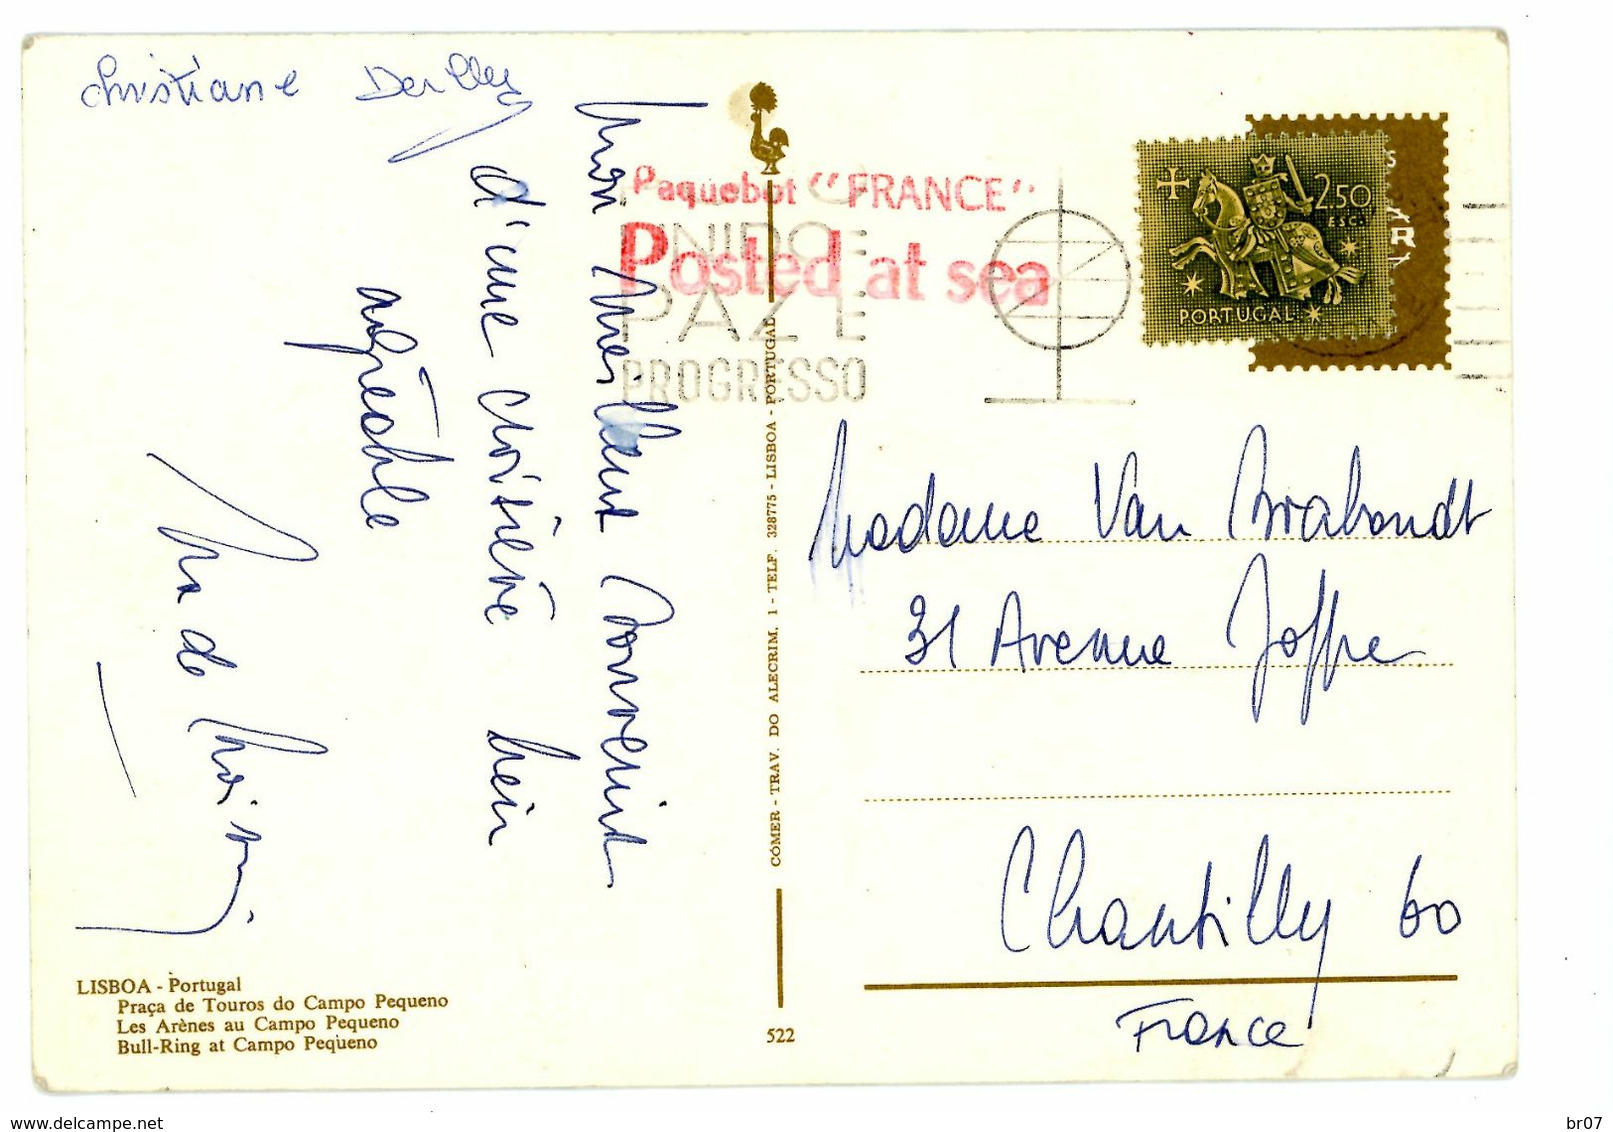 Christiane Derlly
Mon meilleur souvenir
d'une croisière bien
agréable
LISBOA - Portugal
Praça de Touros do Campo Pequeno
Les Arènes au Campo Pequeno
Bull-Ring at Campo Pequeno
CÓMER - TRAV. DO ALECRIM, 1 - TELF. 328775 - LISBOA - PORTUGAL
522
Paquebot "FRANCE"
Posted at sea
UNIDO E
PAZ E
PROGRESSO
2$50
ESCO
PORTUGAL
Madame Van Brabandt
31 Avenue Joffre
Chantilly 60
France
www.delcampe.net
br07